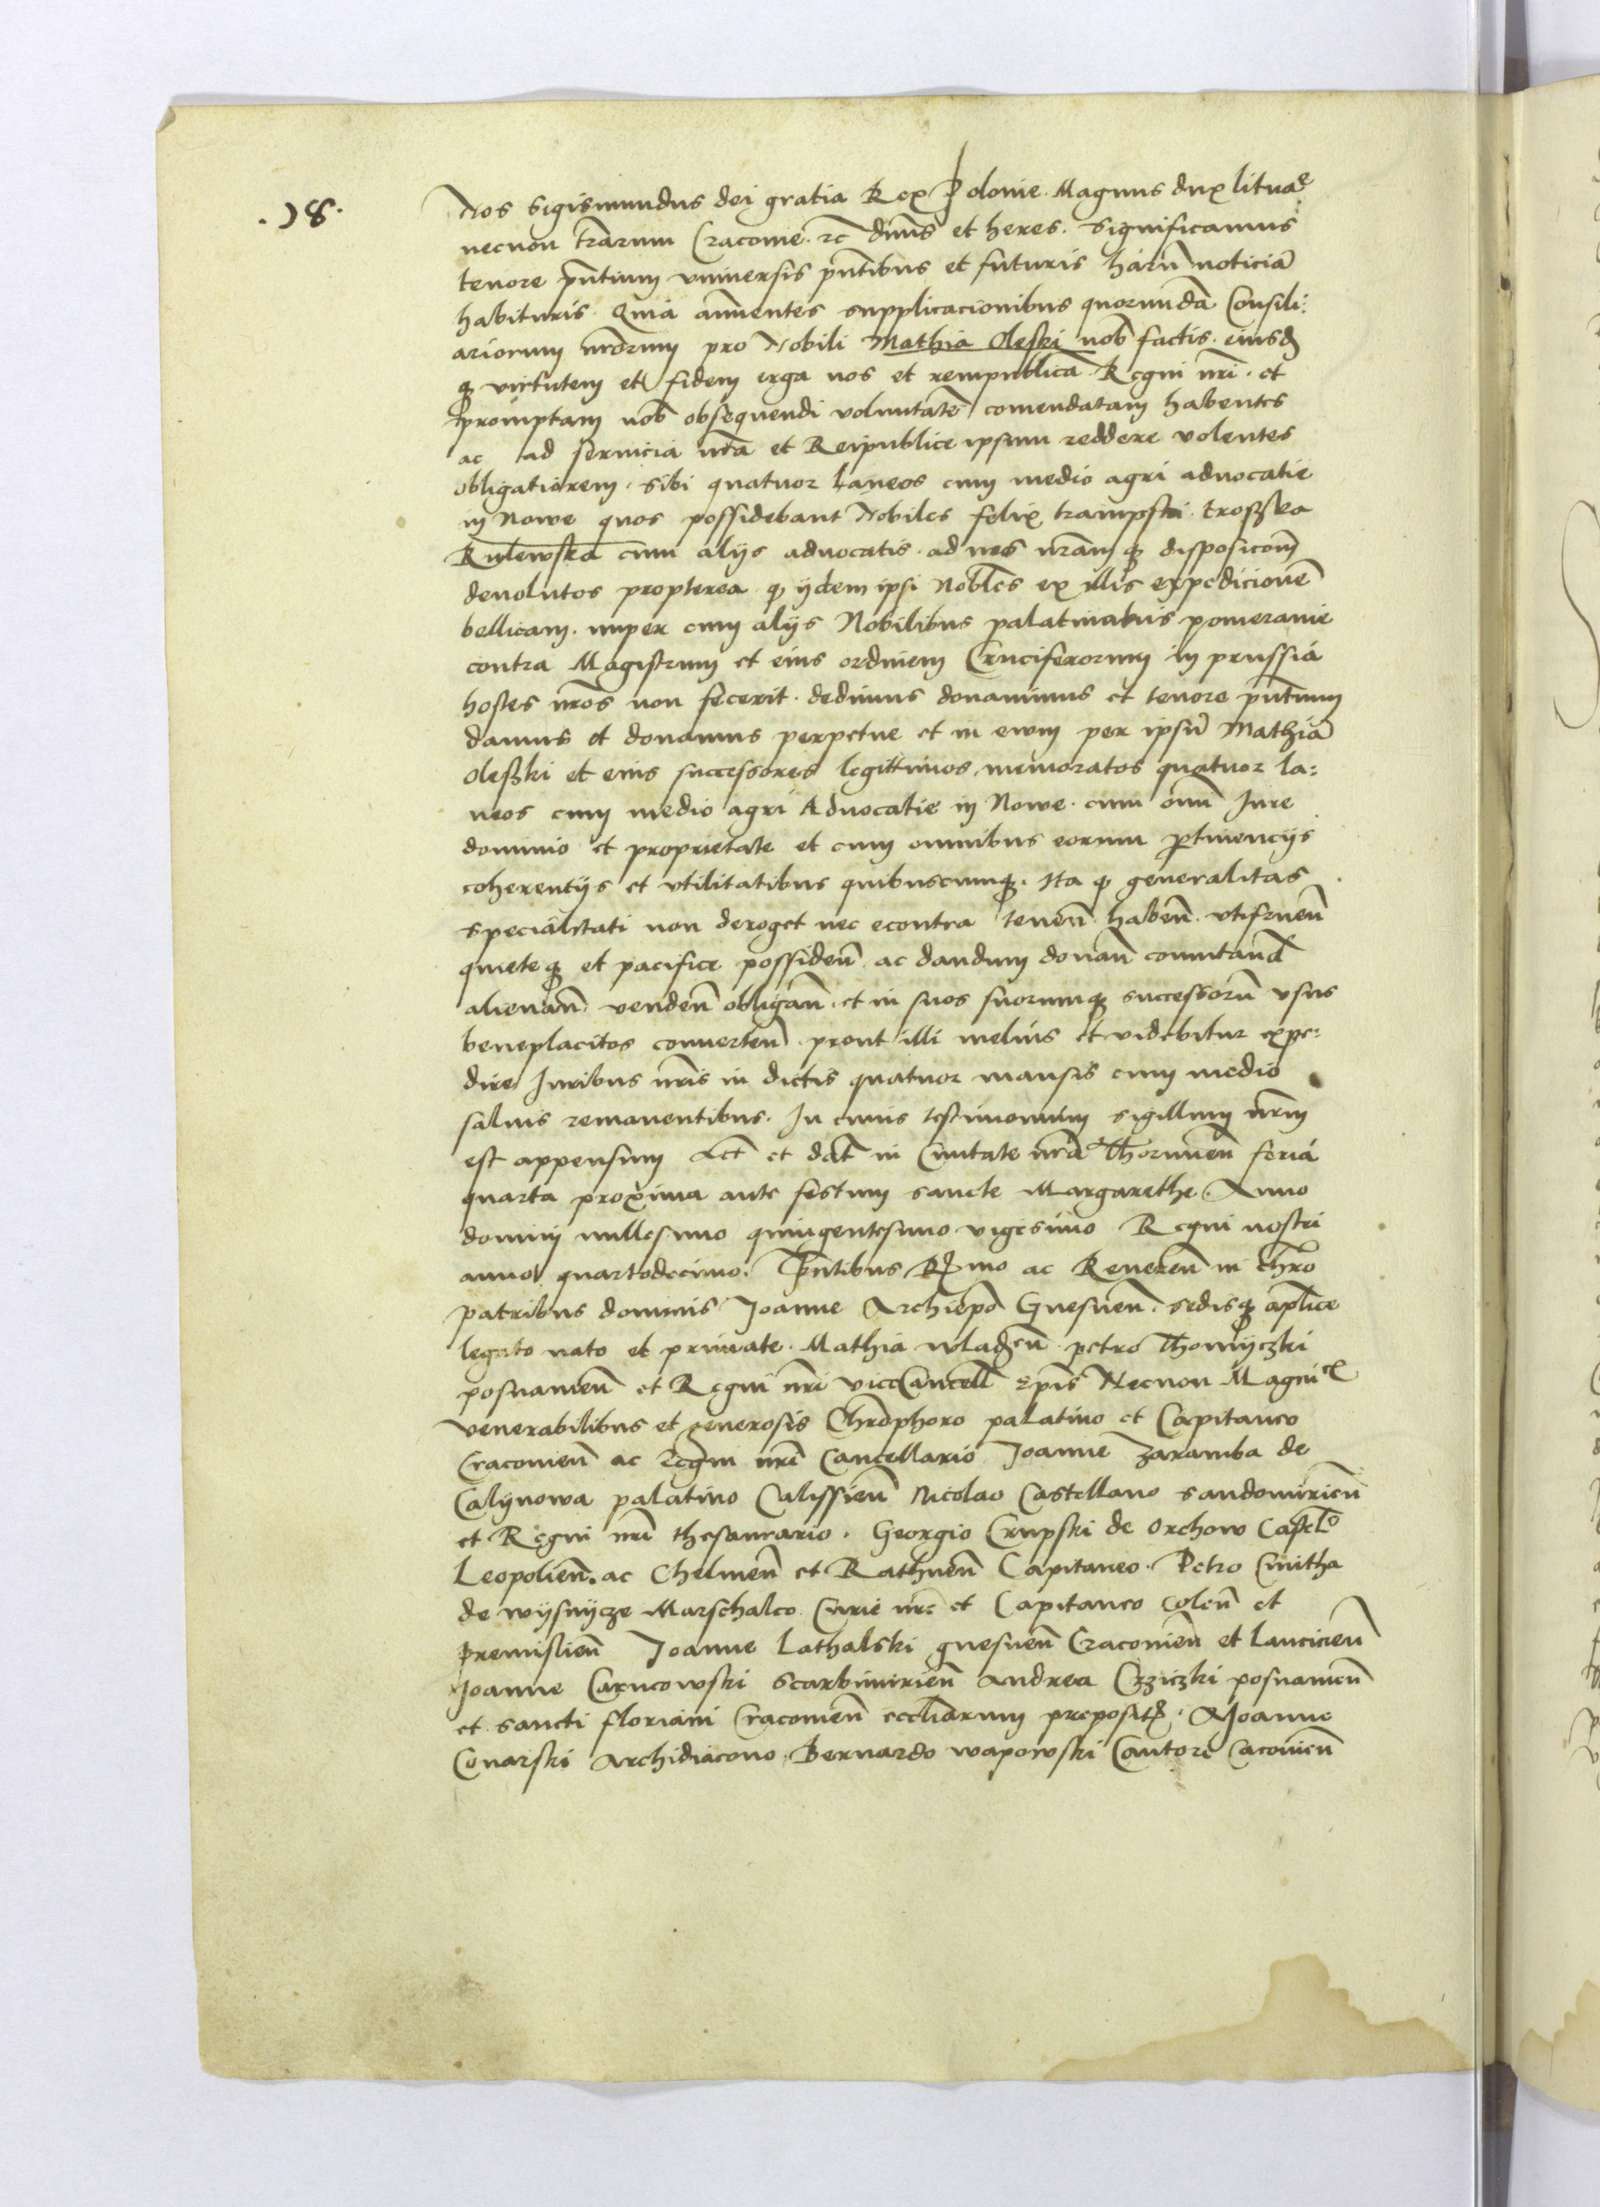 ·18·
Nos Sigismundus dei gratia Rex Polonie. Magnus dux lituae
necnon trarum Cracovie. rc dnus et heres. Significamus
tenore pntium vniuersis pntibus et futuris harum noticiam
habituris. Quia annuentes supplicacionibus quorumda Consili:
ariorum nrorum pro Nobili Mathia Oleski nob factis. eiusd
q virtutem et fidem erga nos et rempublica Regni nri. et
promptam nob obsequendi voluntate comendatam habentes
ac ad seruicia nra et Reipublice ipsum reddere volentes
obligatiorem. sibi quatuor laneos cum medio agri aduocatie
in Nowe quos possidebant Nobiles felix trampski. trosska
Rulewska cum alijs aduocatis. ad nos nramq disposicom
deuolutos propterea q ijdem ipsi Nobles ex illis expedicione
bellicam. nuper cum alijs Nobilibus palatinatus pomeranie
contra Magistrum et eius ordinem Cruciferorum in prussia
hostes nros non fecerit. dedimus donauimus et tenore pntium
damus et donamus perpetue et in eum per ipsu Mathia
Olesski et eius successores legittimos memoratos quatuor la:
neos cum medio agri Aduocatie in Nowe. cum omi Jure
dominio et proprietate et cum omnibus eorum ptinencijs
coherentijs et vtilitatibus quibuscumq. Ita q generalitas
specialitati non deroget nec econtra tenen haben. vtifruen
quiete q et pacifice possiden ac dandum donan comutand
alienan. venden obligan. et in suos suorumq successoru vsus
beneplacitos conuerten. prout illi melius et videbitur expe:
dire Juribus nris in dictis quatuor mansis cum medio
saluis remanentibus. In cuius testimonium sigillum nrm
est appensum Act et dat in Ciuitate nra Thorunen feria
quarta proxima ante festum sancte Margarethe. Anno
domini millesimo quingentesimo vigesimo Regni nostri
anno quartodecimo. Pntibus Rmo ac Reueren in chro
patribus dominis Joanne Archiepo Gnesnen. sedisq aplice
legato nato et primate. Mathia wladen petro Thomijczki
posnanien et Regni nri viceCancell Epis Necnon Magnicis
venerabilibus et generosis Chrophoro palatino et Capitaneo
Cracouien ac Regni nri Cancellario Joanne Zaramba de
Calijnowa palatino Calissien Nicolao Castellano sandomirien
et Regni nri thesaurario. Georgio Crupski de Orchow Castelo
Leopolien. ac Chelmen et Rathnen Capitaneo. Petro Cmitha
de wijsnijcze Marschalco Curie nre et Capitaneo Colen et
premislien Joanne Lathalski gnesnen Cracouien et Lancicien
Joanne Carncowski Scarbimirien Andrea Crziczki posnanien
et sancti floriani Cracouien eccliarum preposit. Joanne
Conarski Archidiacono. Bernardo wapowski Cantore Cacouien